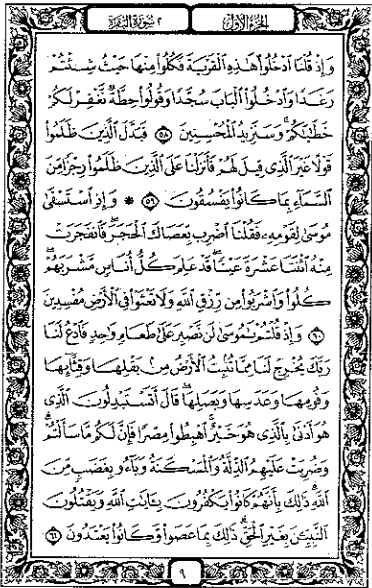 الجزء الأول
٢ سورة البقرة
وَإِذْ قُلْنَا ٱدْخُلُوا۟ هَٰذِهِ ٱلْقَرْيَةَ فَكُلُوا۟ مِنْهَا حَيْثُ شِئْتُمْ
رَغَدًا وَٱدْخُلُوا۟ ٱلْبَابَ سُجَّدًا وَقُولُوا۟ حِطَّةٌ نَّغْفِرْ لَكُمْ
خَطَٰيَٰكُمْ ۚ وَسَنَزِيدُ ٱلْمُحْسِنِينَ ٥٨ فَبَدَّلَ ٱلَّذِينَ ظَلَمُوا۟
قَوْلًا غَيْرَ ٱلَّذِى قِيلَ لَهُمْ فَأَنزَلْنَا عَلَى ٱلَّذِينَ ظَلَمُوا۟ رِجْزًا مِّنَ
ٱلسَّمَآءِ بِمَا كَانُوا۟ يَفْسُقُونَ ٥٩ * وَإِذِ ٱسْتَسْقَىٰ
مُوسَىٰ لِقَوْمِهِۦ فَقُلْنَا ٱضْرِب بِّعَصَاكَ ٱلْحَجَرَ ۖ فَٱنفَجَرَتْ
مِنْهُ ٱثْنَتَا عَشْرَةَ عَيْنًا ۖ قَدْ عَلِمَ كُلُّ أُنَاسٍ مَّشْرَبَهُمْ ۖ
كُلُوا۟ وَٱشْرَبُوا۟ مِن رِّزْقِ ٱللَّهِ وَلَا تَعْثَوْا۟ فِى ٱلْأَرْضِ مُفْسِدِينَ
٦٠ وَإِذْ قُلْتُمْ يَٰمُوسَىٰ لَن نَّصْبِرَ عَلَىٰ طَعَامٍ وَٰحِدٍ فَٱدْعُ لَنَا
رَبَّكَ يُخْرِجْ لَنَا مِمَّا تُنۢبِتُ ٱلْأَرْضُ مِنۢ بَقْلِهَا وَقِثَّآئِهَا
وَفُومِهَا وَعَدَسِهَا وَبَصَلِهَا ۖ قَالَ أَتَسْتَبْدِلُونَ ٱلَّذِى
هُوَ أَدْنَىٰ بِٱلَّذِى هُوَ خَيْرٌ ۚ ٱهْبِطُوا۟ مِصْرًا فَإِنَّ لَكُم مَّا سَأَلْتُمْ ۗ
وَضُرِبَتْ عَلَيْهِمُ ٱلذِّلَّةُ وَٱلْمَسْكَنَةُ وَبَآءُو بِغَضَبٍ مِّنَ
ٱللَّهِ ۗ ذَٰلِكَ بِأَنَّهُمْ كَانُوا۟ يَكْفُرُونَ بِـَٔايَٰتِ ٱللَّهِ وَيَقْتُلُونَ
ٱلنَّبِيِّـۧنَ بِغَيْرِ ٱلْحَقِّ ۗ ذَٰلِكَ بِمَا عَصَوا۟ وَّكَانُوا۟ يَعْتَدُونَ ٦١
٩